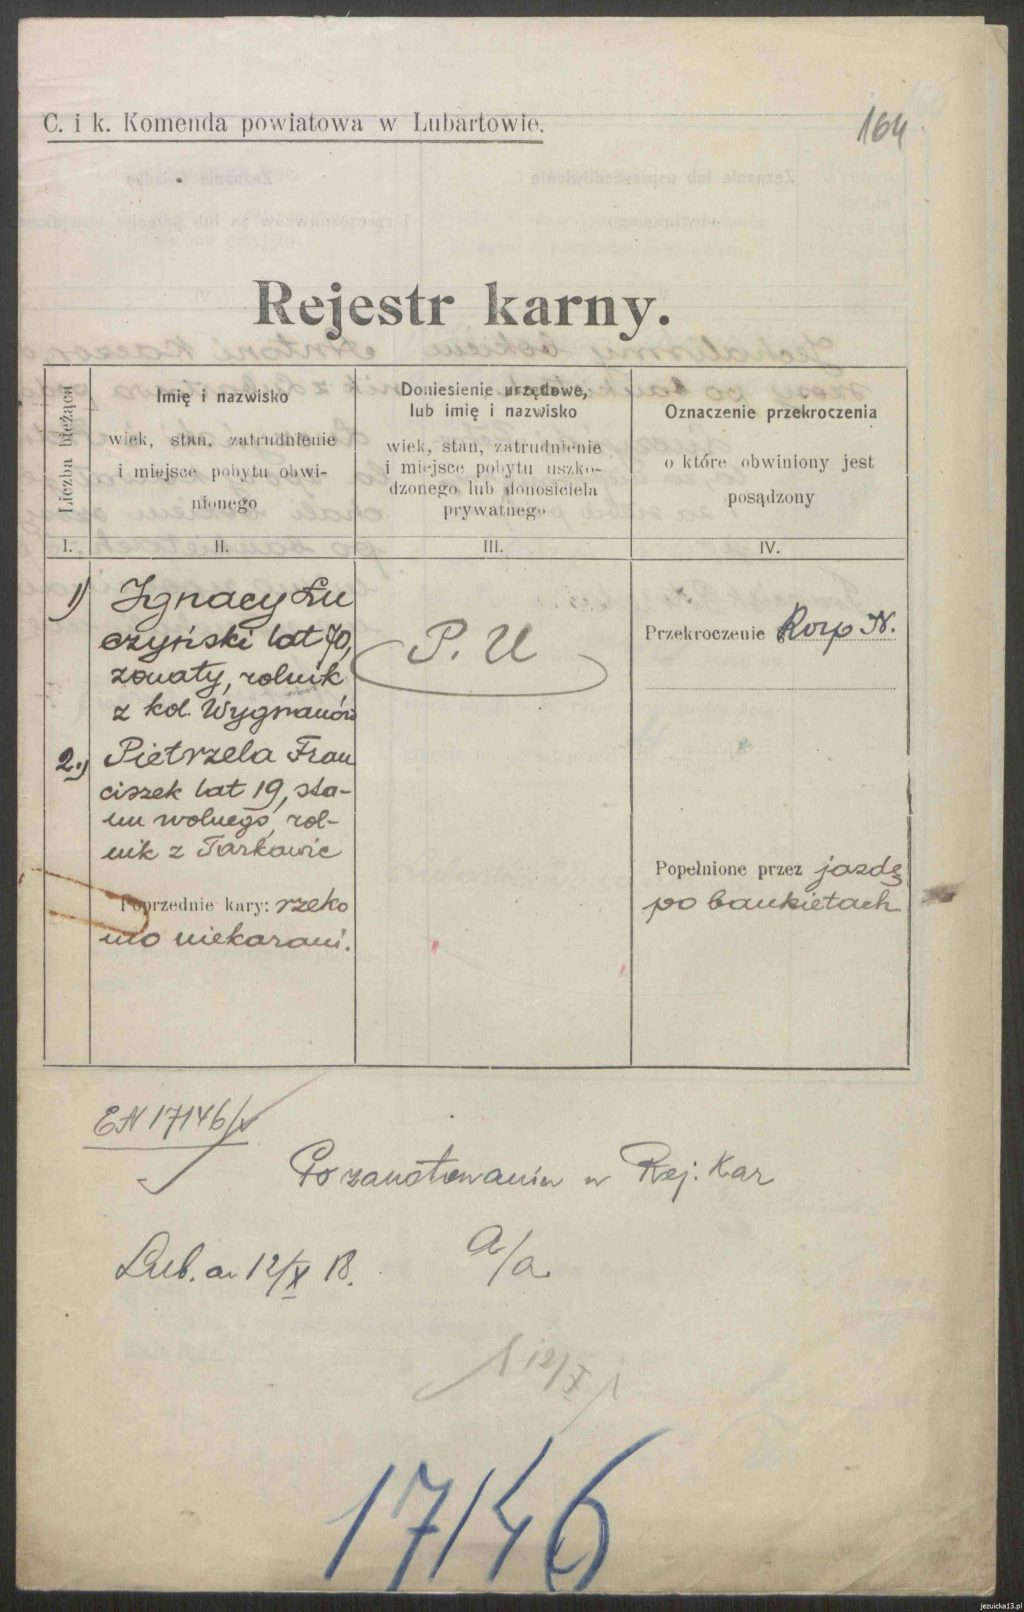 C. i k. Komenda powiatowa w Lubartowie.
164
Rejestr karny.
Liczba bieżąca
Imię i nazwisko
wiek, stan, zatrudnienie
i miejsce pobytu obwi-
nionego
Doniesienie urzędowe,
lub imię i nazwisko
wiek, stan, zatrudnienie
i miejsce pobytu uszko-
dzonego lub donosiciela
prywatnego
Oznaczenie przekroczenia
o które obwiniony jest
posądzony
I.
II.
III.
IV.
1)
Ignacy Łu
czyński lat 70,
żonaty, rolnik
z kol. Wygnanów
2.)
Pietrzela Fran
ciszek lat 19, sta-
nu wolnego, rol-
nik z Tarkawic
Poprzednie kary: rzeko
mo niekarani.
P. U
Przekroczenie Rozp N.
Popełnione przez jazdę
po bankietach
EN 17146/
Po zanotowaniu w Rej. Kar
a/a
Lub. 12/X 18.
12/X
17146
jezuicka13.pl